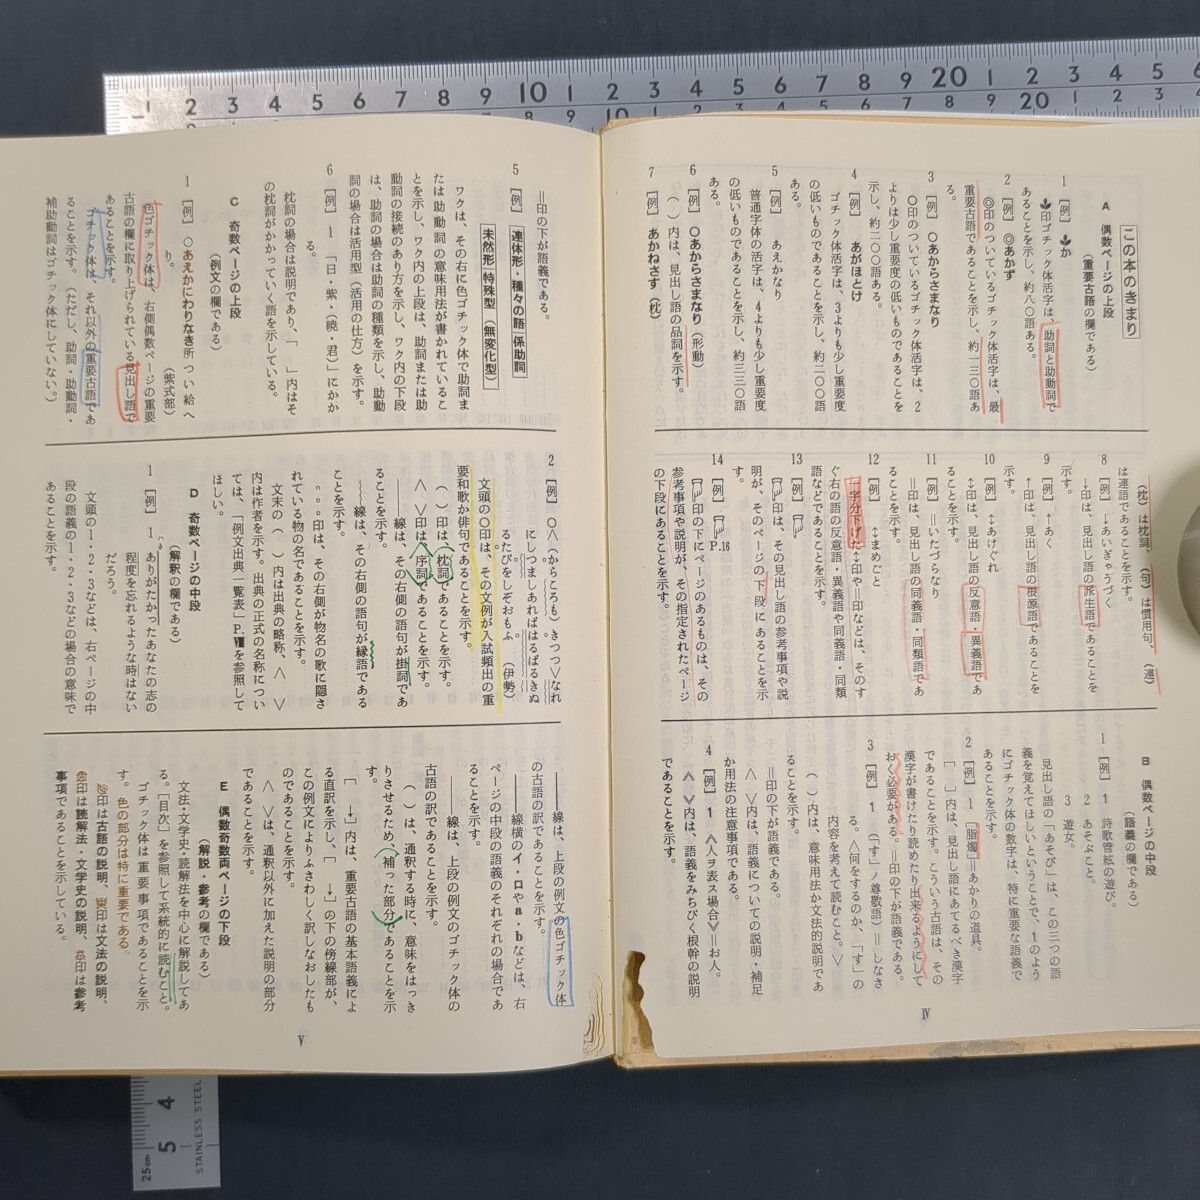 この本のきまり
A 偶数ページの上段
(重要古語の欄である)
1 [例] か
印ゴチック体活字は、助詞と助動詞で
あることを示し、約八〇語ある。
2 [例] ◎あかず
◎印のついているゴチック体活字は、最
重要古語であることを示し、約一三〇語あ
る。
3 [例] 〇あからさまなり
〇印のついているゴチック体活字は、2
よりは少し重要度の低いものであることを
示し、約二〇〇語ある。
4 [例] あがほとけ
ゴチック体活字は、3よりも少し重要度
の低いものであることを示し、約二〇〇語
ある。
5 [例] あえかなり
普通字体の活字は、4よりも少し重要度
の低いものであることを示し、約三三〇語
ある。
6 [例] 〇あからさまなり(形動)
( )内は、見出し語の品詞を示す。
7 [例] あかねさす(枕)
(枕)は枕詞、(句)は慣用句、(連)
は連語であることを示す。
8 [例] →あいぎゃうづく
↓印は、見出し語の派生語であることを
示す。
9 [例] ↑あく
↑印は、見出し語の根源語であることを
示す。
10 [例] ↕あけぐれ
↕印は、見出し語の反意語・異義語であ
ることを示す。
11 [例] =いたづらなり
=印は、見出し語の同義語・同類語であ
ることを示す。
12 [例] ↕まめごと
一字分下げた↕印や=印などは、そのす
ぐ右の語の反意語・異義語や同義語・同類
語などであることを示す。
13 [例]
印は、その見出し語の参考事項や説
明が、そのページの下段にあることを示
す。
14 [例] P.16
印の下にページのあるものは、その
参考事項や説明が、その指定されたページ
の下段にあることを示す。
B 偶数ページの中段
(語義の欄である)
1 [例] 1 詩歌管絃の遊び。
2 あそぶこと。
3 遊女。
見出し語の「あそび」は、この三つの語
義を覚えてほしいということで、1のよう
にゴチック体の数字は、特に重要な語義で
あることを示す。
2 [例] 1 [脂燭]=あかりの道具。
[ ]内は、見出し語にあてるべき漢字
であることを示す。こういう古語は、その
漢字が書けたり読めたり出来るようにして
おく必要がある。=印の下が語義である。
3 [例] 1 (「す」ノ尊敬語)=しなさ
る。〈何をするのか、「す」の
内容を考えて読むこと。〉
( )内は、意味用法か文法的説明であ
ることを示す。
=印の下が語義である。
〈 〉内は、語義についての説明・補足
か用法の注意事項である。
4 [例] 1 《人ヲ表ス場合》=お人。
《 》内は、語義をみちびく根幹の説明
であることを示す。
Ⅳ
=印の下が語義である。
5 [例] 連体形・種々の語 係助詞
未然形 特殊型(無変化型)
ワクは、その右に色ゴチック体で助詞ま
たは助動詞の意味用法が書かれているこ
とを示し、ワク内の上段は、助詞または助
動詞の接続のあり方を示し、ワク内の下段
は、助詞の場合は助詞の種類を示し、助動
詞の場合は活用型(活用の仕方)を示す。
6 [例] 1 「日・紫・(暁・君)」にかか
る。
枕詞の場合は説明であり、「 」内はそ
の枕詞がかかっていく語を示している。
C 奇数ページの上段
(例文の欄である)
1 [例] 〇あえかにわりなき所つい給へ
り。 (紫式部)
色ゴチック体は、右側偶数ページの重要
古語の欄に取り上げられている見出し語で
あることを示す。
ゴチック体は、それ以外の重要古語であ
ることを示す。(ただし、助詞・助動詞・
補助動詞はゴチック体にしていない。)
2 [例] 〇〈(からころも)きつつ〉なれ
にしつましあればはるばるきぬ
るたびをしぞおもふ (伊勢)
文頭の〇印は、その文例が入試頻出の重
要和歌か俳句であることを示す。
( )印は、枕詞であることを示す。
〈 〉印は、序詞であることを示す。
――線は、その右側の語句が掛詞であ
ることを示す。
線は、その右側の語句が縁語である
ことを示す。
。。。印は、その右側が物名の歌に隠さ
れている物の名であることを示す。
文末の( )内は出典の略称、〈 〉
内は作者を示す。出典の正式の名称につい
ては、「例文出典一覧表」P.Ⅷを参照して
ほしい。
D 奇数ページの中段
(解釈の欄である)
1 [例] 1 ありがたかったあなたの志の
程度を忘れるような時はない
だろう。
文頭の1・2・3などは、右ページの中
段の語義の1・2・3などの場合の意味で
あることを示す。
――線は、上段の例文の色ゴチック体
の古語の訳であることを示す。
――線横のイ・ロやa・bなどは、右
ページの中段の語義のそれぞれの場合であ
ることを示す。
――線は、上段の例文のゴチック体の
古語の訳であることを示す。
( )は、通釈する時に、意味をはっき
りさせるため補った部分であることを示
す。
[ ↓]内は、重要古語の基本語義によ
る直訳を示し、[ ↓]の下の傍線部が、
この例文によりふさわしく訳しなおしたも
のであることを示す。
〈 〉は、通釈以外に加えた説明の部分
であることを示す。
E 偶数奇数両ページの下段
(解説・参考の欄である)
文法・文学史・読解法を中心に解説してあ
る。「目次」を参照して系統的に読むこと。
ゴチック体は重要事項であることを示
す。色の部分は特に重要である。
印は古語の説明、印は文法の説明、
印は読解法・文学史の説明、印は参考
事項であることを示している。
Ⅴ
1 2 3 4 5 6 7 8 9 10 1 2 3 4 5 6 7 8 9 20 1 2 3 4 5 6
25cm
5 4
STAINLESS STEEL